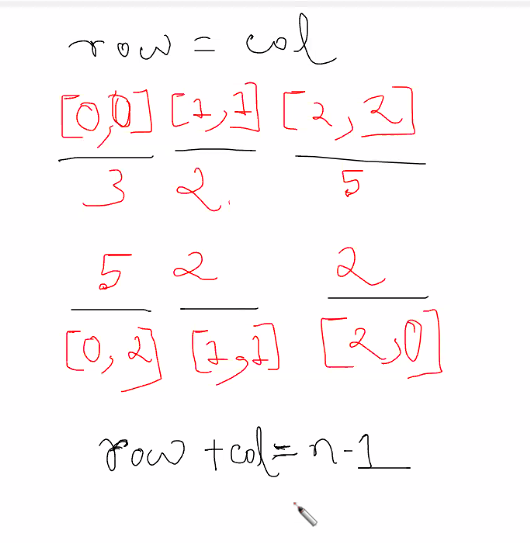 row = col
[0,0] [1,1] [2,2]
3 2. 5
5 2 2
[0,2] [1,1] [2,0]
row + col = n-1